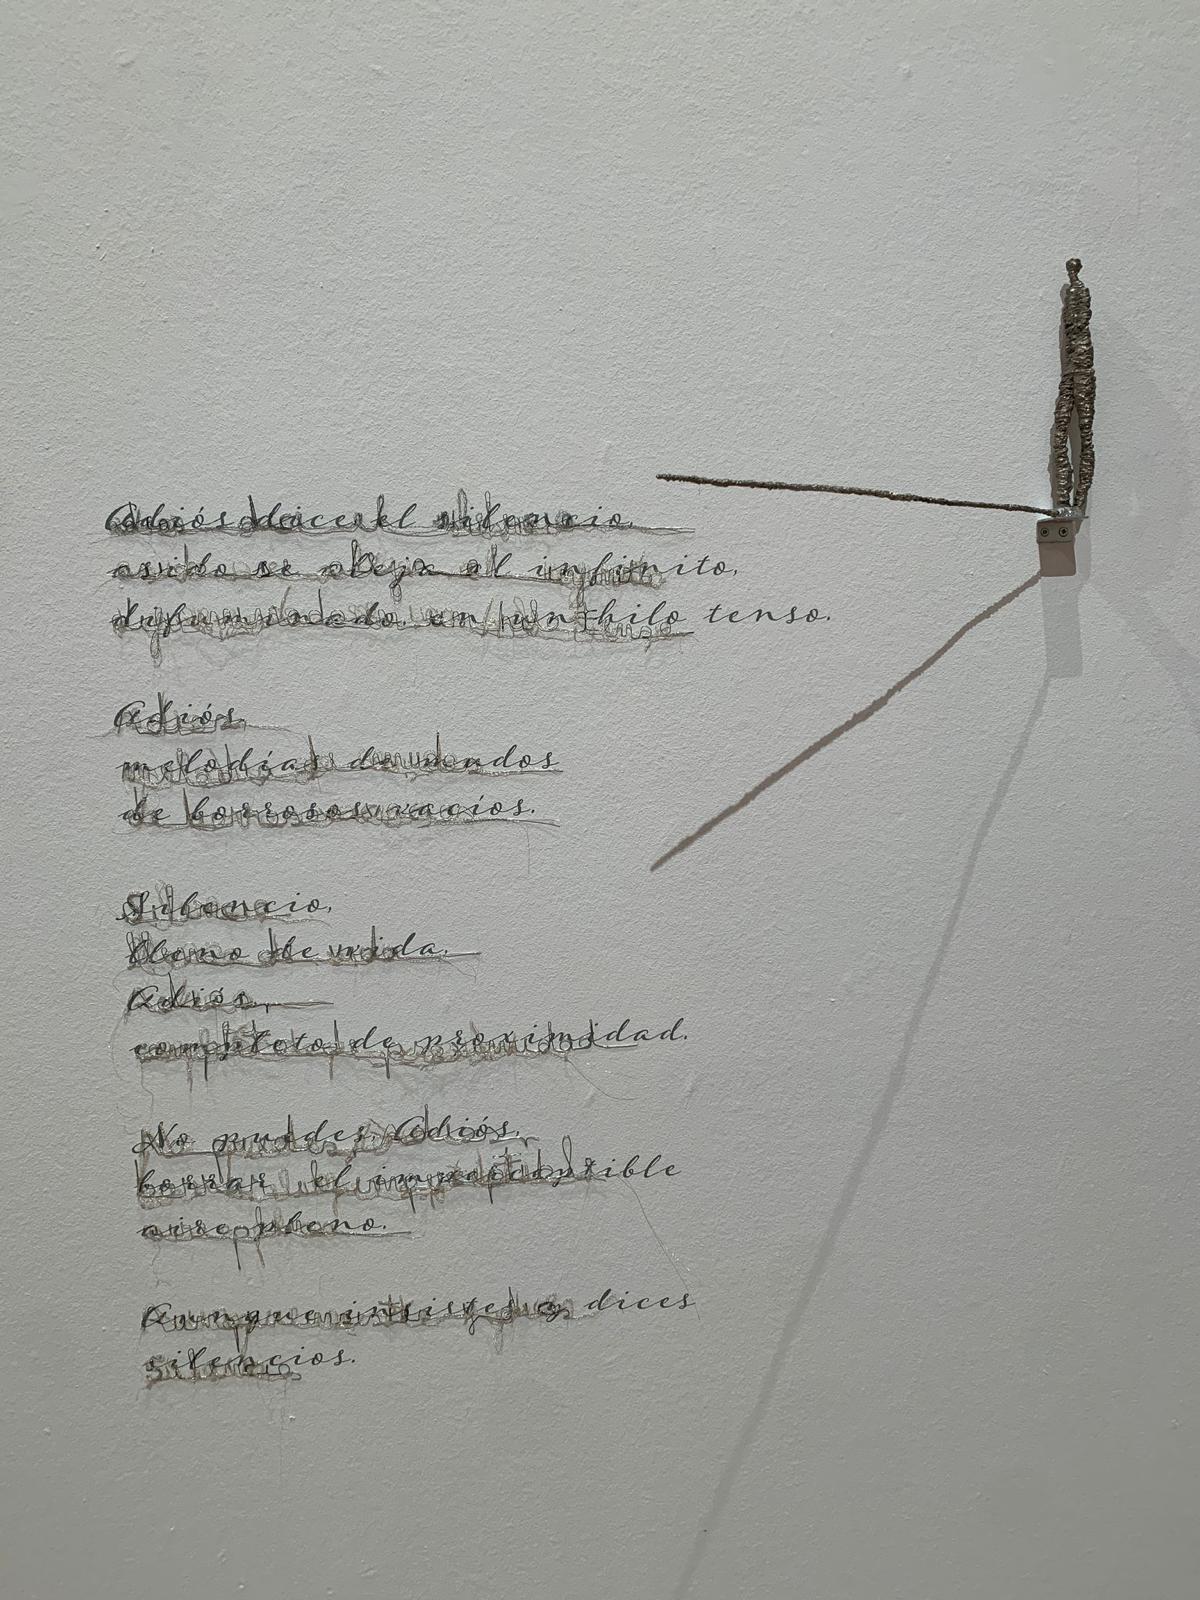 Adiós dice el silencio,
asido se aleja al infinito,
difuminado en un hilo tenso.
Adiós,
melodías de mudos
de borrosos vacíos.
Silencio,
lleno de vida.
Adiós,
completo de proximidad.
No puedes, Adiós,
borrar el imperceptible
aire pleno.
Aunque insistes y dices
silencios.